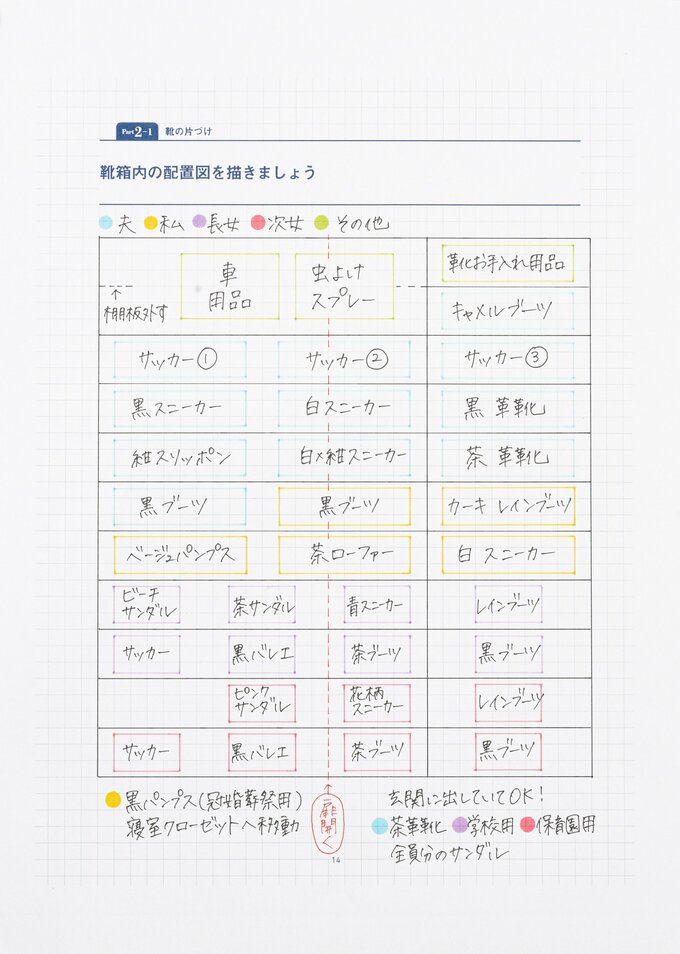 Part 2-1 靴の片づけ
靴箱内の配置図を描きましょう
夫 私 長女 次女 その他
車用品 虫よけスプレー 靴お手入れ用品
↑棚板外す キャメルブーツ
サッカー① サッカー② サッカー③
黒スニーカー 白スニーカー 黒 革靴
紺スリッポン 白×紺スニーカー 茶 革靴
黒ブーツ 黒ブーツ カーキ レインブーツ
ベージュパンプス 茶ローファー 白 スニーカー
ビーチサンダル 茶サンダル 青スニーカー レインブーツ
サッカー 黒バレエ 茶ブーツ 黒ブーツ
ピンクサンダル 花柄スニーカー レインブーツ
サッカー 黒バレエ 茶ブーツ 黒ブーツ
黒パンプス(冠婚葬祭用)
寝室クローゼットへ移動
↑扉開く
玄関に出していてOK!
茶革靴 学校用 保育園用
全員分のサンダル
14